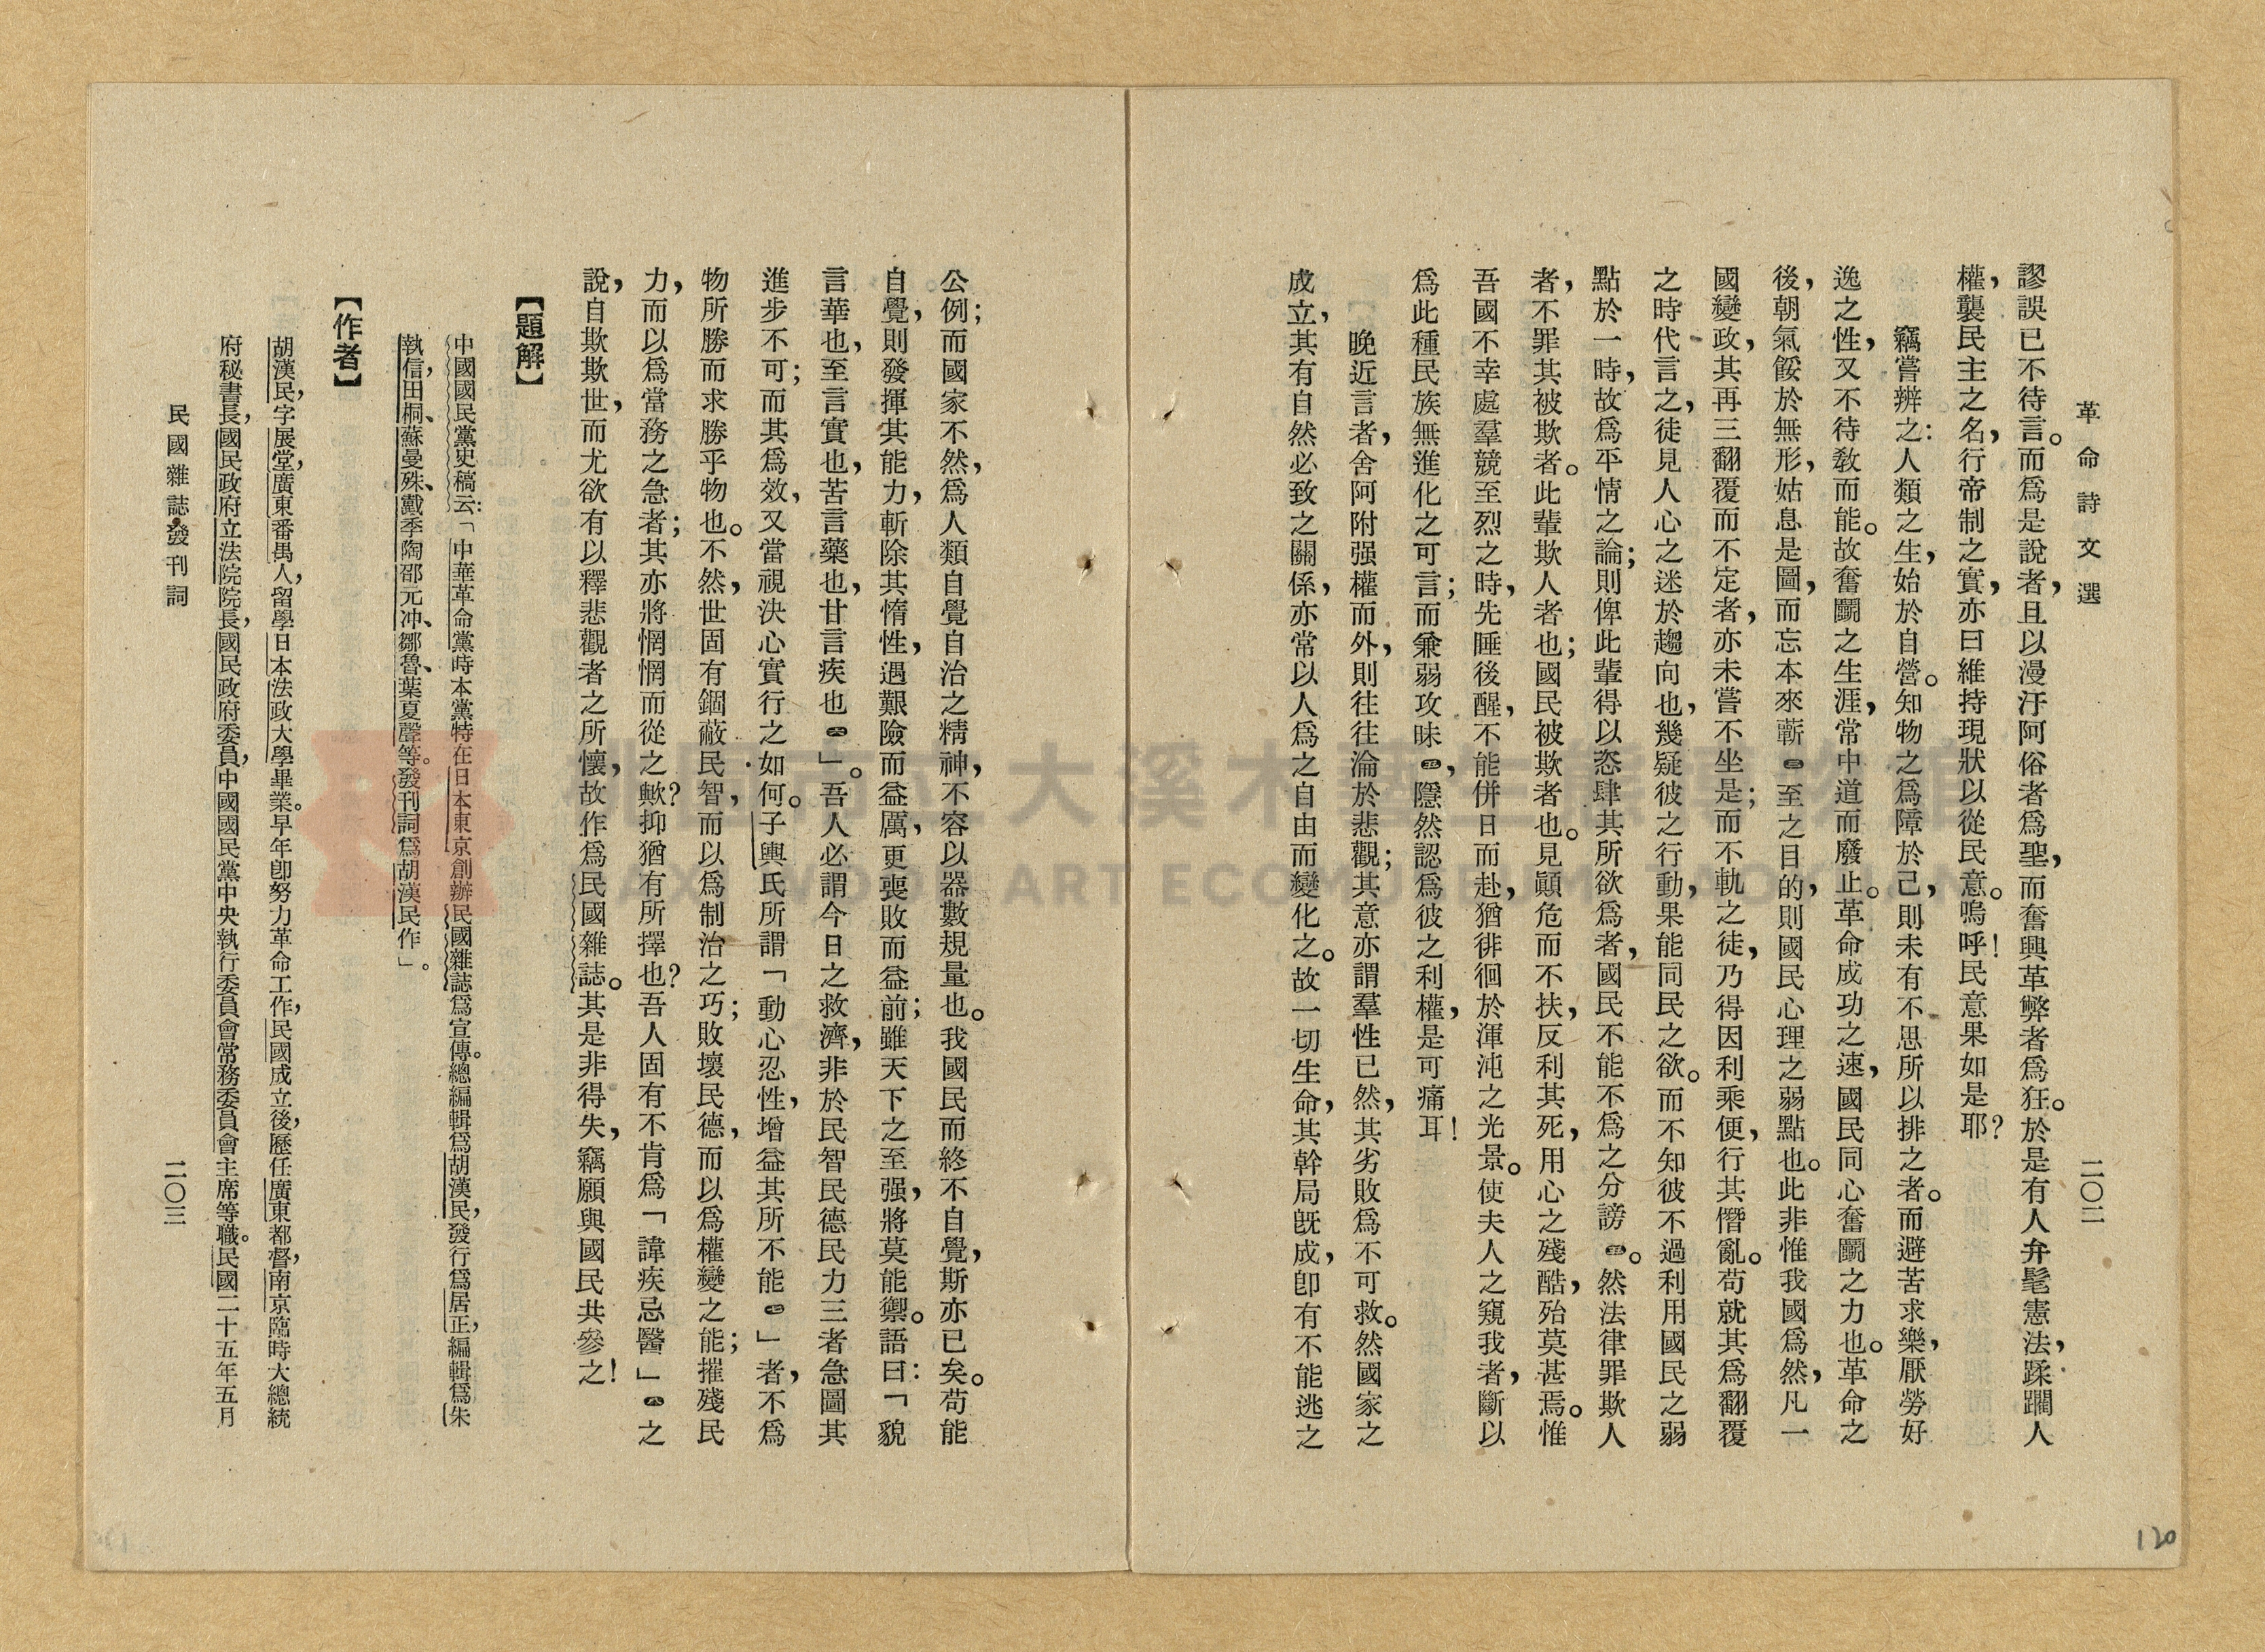 革命詩文選
二〇二
謬誤已不待言。而爲是說者，且以漫汙阿俗者爲聖，而奮興革弊者爲狂。於是有人弁髦憲法，蹂躪人
權，襲民主之名，行帝制之實，亦曰維持現狀以從民意。嗚呼！民意果如是耶？
竊嘗辨之：人類之生，始於自營。知物之爲障於己，則未有不思所以排之者。而避苦求樂，厭勞好
逸之性，又不待教而能。故奮鬭之生涯，常中道而廢止。革命成功之速，國民同心奮鬭之力也。革命之
後，朝氣餒於無形，姑息是圖，而忘本來蘄㊂至之目的，則國民心理之弱點也。此非惟我國爲然，凡一
國變政，其再三翻覆而不定者，亦未嘗不坐是；而不軌之徒，乃得因利乘便，行其僭亂。苟就其爲翻覆
之時代言之，徒見人心之迷於趨向也，幾疑彼之行動，果能同民之欲。而不知彼不過利用國民之弱
點於一時，故爲平情之論；則俾此輩得以恣肆其所欲爲者，國民不能不爲之分謗㊃。然法律罪欺人
者，不罪其被欺者。此輩欺人者也；國民被欺者也。見顚危而不扶，反利其死，用心之殘酷，殆莫甚焉。惟
吾國不幸處羣競至烈之時，先睡後醒，不能併日而赴，猶徘徊於渾沌之光景。使夫人之窺我者，斷以
爲此種民族無進化之可言；而兼弱攻昧㊄，隱然認爲彼之利權，是可痛耳！
晚近言者，舍阿附强權而外，則往往淪於悲觀；其意亦謂羣性已然，其劣敗爲不可救。然國家之
成立，其有自然必致之關係，亦常以人爲之自由而變化之。故一切生命，其幹局旣成，卽有不能逃之
公例；而國家不然，爲人類自覺自治之精神，不容以器數規量也。我國民而終不自覺，斯亦已矣。苟能
自覺，則發揮其能力，斬除其惰性，遇艱險而益厲，更喪敗而益前；雖天下之至强，將莫能禦。語曰：「貌
言華也，至言實也，苦言藥也，甘言疾也㊅」。吾人必謂今日之救濟，非於民智民德民力三者急圖其
進步不可；而其爲效，又當視決心實行之如何。子輿氏所謂「動心忍性，增益其所不能㊆」者，不爲
物所勝而求勝乎物也。不然，世固有錮蔽民智，而以爲制治之巧；敗壞民德，而以爲權變之能；摧殘民
力，而以爲當務之急者；其亦將惘惘而從之歟？抑猶有所擇也？吾人固有不肯爲「諱疾忌醫」㊇之
說，自欺欺世，而尤欲有以釋悲觀者之所懷，故作爲民國雜誌。其是非得失，竊願與國民共參之！
【題解】
中國國民黨史稿云：「中華革命黨時本黨特在日本東京創辦民國雜誌爲宣傳。總編輯爲胡漢民，發行爲居正，編輯爲朱
執信，田桐、蘇曼殊、戴季陶邵元冲、鄒魯、葉夏聲等。發刊詞爲胡漢民作」。
【作者】
胡漢民，字展堂，廣東番禺人，留學日本法政大學畢業。早年卽努力革命工作，民國成立後，歷任廣東都督，南京臨時大總統
府秘書長，國民政府立法院院長，國民政府委員，中國國民黨中央執行委員會常務委員會主席等職。民國二十五年五月
民國雜誌發刊詞
二〇三
120
桃園市立大溪木藝生態博物館
DAXI WOOD ART ECOMUSEUM TAOYUAN